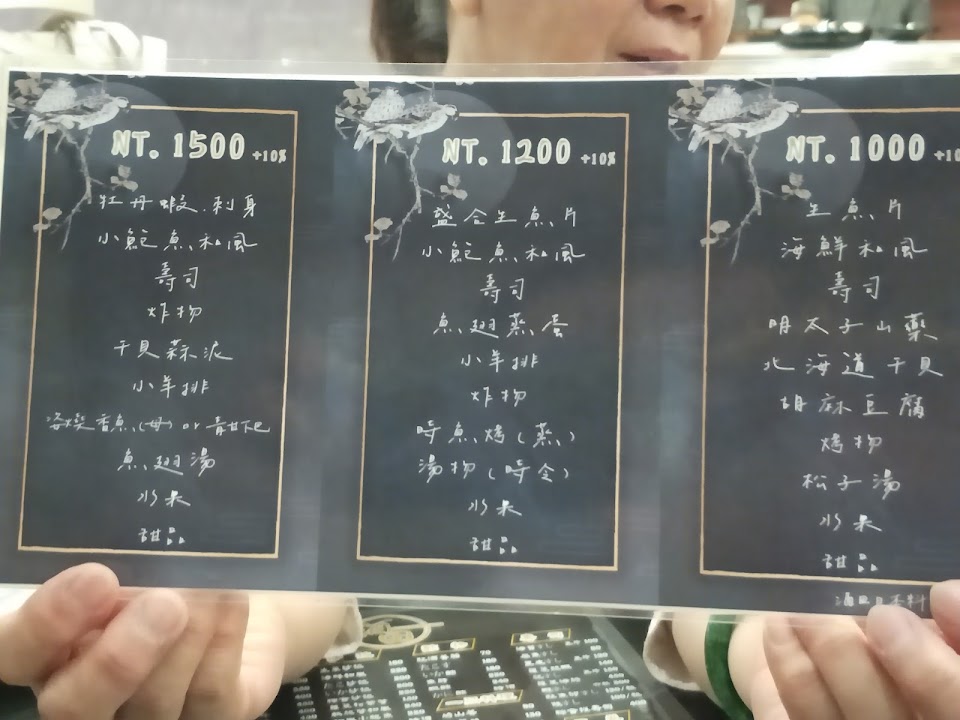 NT. 1500 +10%
牡丹蝦.刺身
小鮑魚和風
壽司
炸物
干貝蒜泥
小羊排
香魚(母) or 青甘下巴
魚翅湯
水果
甜品
NT. 1200 +10%
盛合生魚片
小鮑魚和風
壽司
魚翅蒸蛋
小羊排
炸物
時魚烤(蒸)
湯物(時令)
水果
甜品
NT. 1000 +10
生魚片
海鮮和風
壽司
明太子山藥
北海道干貝
胡麻豆腐
烤物
松子湯
水果
甜品